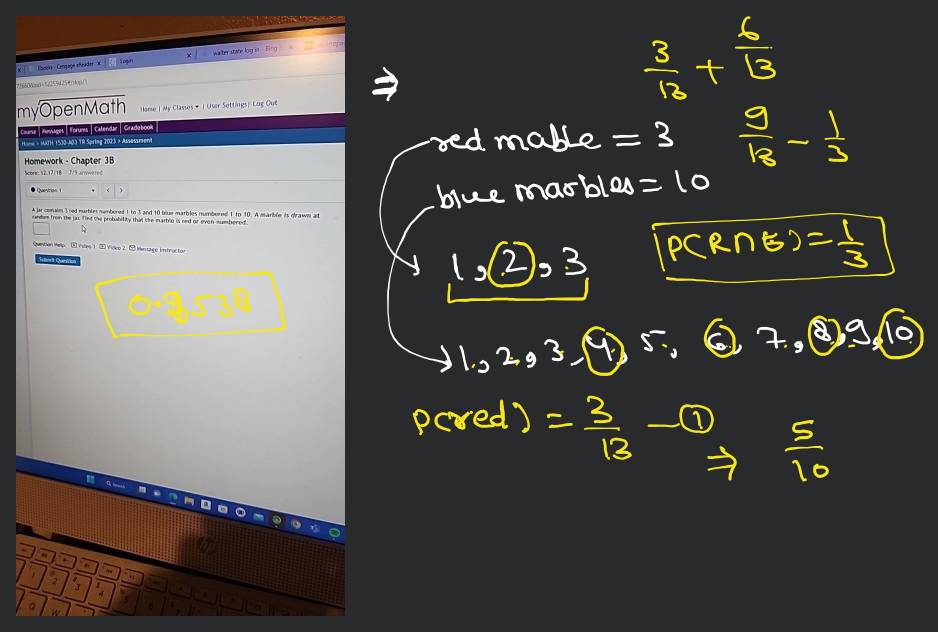 Ebooks - Cengage eReader X
Login X
walter state log in - Bing
myOpenMath
Home | My Classes | User Settings | Log Out
Course Messages Forums Calendar Gradebook
Home > MATH 1530-A03 TR Spring 2023 > Assessment
Homework - Chapter 3B
Score: 12.17/18 7/9 answered
Question 1
A jar contains 3 red marbles numbered 1 to 3 and 10 blue marbles numbered 1 to 10. A marble is drawn at
random from the jar. Find the probability that the marble is red or even-numbered.
Question Help: Video 1 Video 2 Message instructor
Submit Question
Search
⇒ 3/13 + 6/13
red mable = 3
9/13 - 1/3
blue marbles = 10
P(R∩E) = 1/3
1, 2, 3
1, 2, 3, 4, 5, 6, 7, 8, 9, 10
P(red) = 3/13 — ①
⇒ 5/10